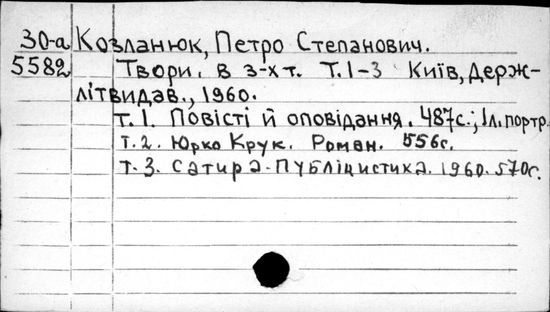 30-а Козланюк, Петро Степанович.
5582 Твори. В 3-х т. Т.1-3 Київ, Держ-
літвидав., 1960.
т.1. Повісті й оповідання. 487с.; 1л.портр.
т.2. Юрко Крук. Роман. 556с.
т.3. Сатира. Публіцистика. 1960. 570с.